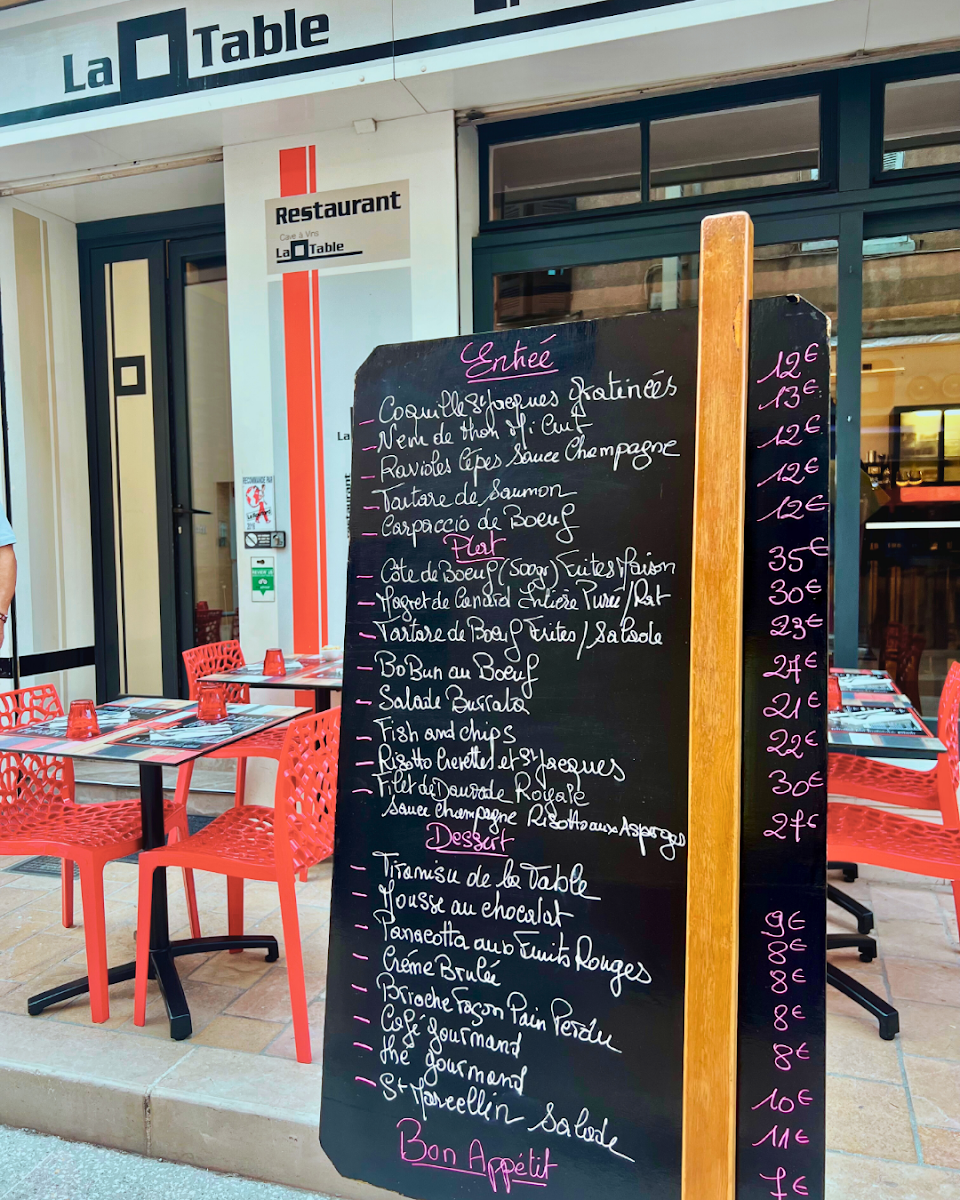 La Table
Restaurant
Cave à Vins
La Table
La
Restaurant
RECOMMANDÉ PAR
Entréé
- Coquille St Jacques gratinées 12€
- Nem de thon Mi Cuit 13€
- Ravioles Cèpes Sauce Champagne 12€
- Tartare de Saumon 12€
- Carpaccio de Boeuf 12€
Plat
- Côte de Boeuf (500g) Frites Maison 35€
- Magret de Canard Entière Purée/Rat 30€
- Tartare de Boeuf Frites/Salade 23€
- BoBun au Boeuf 24€
- Salade Burrata 21€
- Fish and chips 22€
- Risotto Crevettes et St Jacques 30€
- Filet de Daurade Royale 27€
Sauce Champagne Risotto aux Asperges
Dessert
- Tiramisu de la Table 9€
- Mousse au chocolat 8€
- Panacotta aux Fruits Rouges 8€
- Créme Brulée 8€
- Brioche Façon Pain Perdu 8€
- Café gourmand 10€
- thé gourmand 11€
- St Marcellin Salade 7€
Bon Appétit